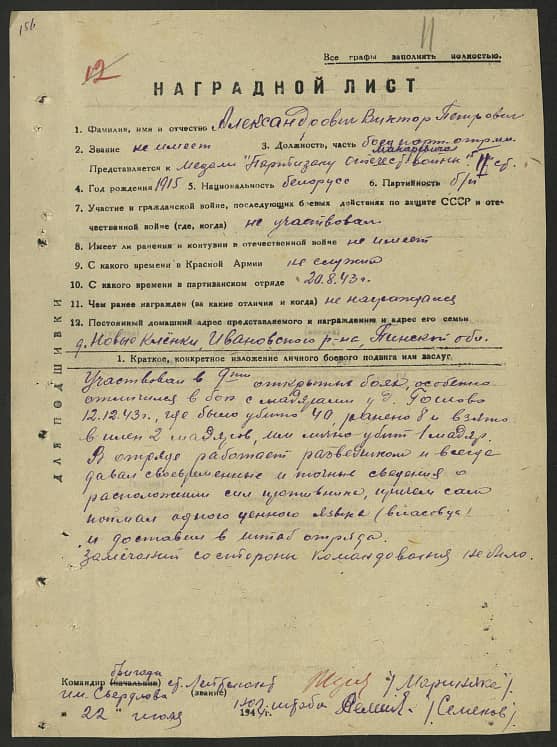 156
11
Все графы заполнить полностью.
12
НАГРАДНОЙ ЛИСТ
1. Фамилия, имя и отчество Александрович Виктор Петрович
2. Звание не имеет 3. Должность, часть боец парт. отряда
Макаревича
Представляется к медали "Партизану Отечеств. войны" II ст.
4. Год рождения 1915 5. Национальность белорусс 6. Партийность б/п
7. Участие и гражданской войне, последующих боевых действиях по защите СССР и оте-
чественной войне (где, когда) не участвовал
8. Имеет ли ранения и контузии в отечественной войне не имеет
9. С какого времени в Красной Армии не служит
10. С какого времени в партизанском отряде 20.8.43 г.
11. Чем ранее награжден (за какие отличия и когда) не награждался
12. Постоянный домашний адрес представляемого к награждению и адрес его семьи
д. Новые Клёнки, Ивановского р-на, Пинской обл.
1. Краткое, конкретное изложение личного боевого подвига или заслуг.
Участвовал в 9ти открытых боях, особенно
отличился в бою с мадярами у д.
12.12.43 г., где было убито 40, ранено 8 и взято
в плен 2 мадяров, им лично убит 1 мадяр.
В отряде работает разведчиком и всегда
давал своевременные и точные сведения о
расположении сил противника, причем сам
поймал одного ценного языка
и доставил в штаб отряда.
Замечаний со стороны командования не было.
ДЛЯ ПОДШИВКИ
бригады
Командир (начальник) ст. Лейтенант /Мариняке/
им. Свердлова (звание)
нач. штаба /Семенов/
"22" июля 1944 г.